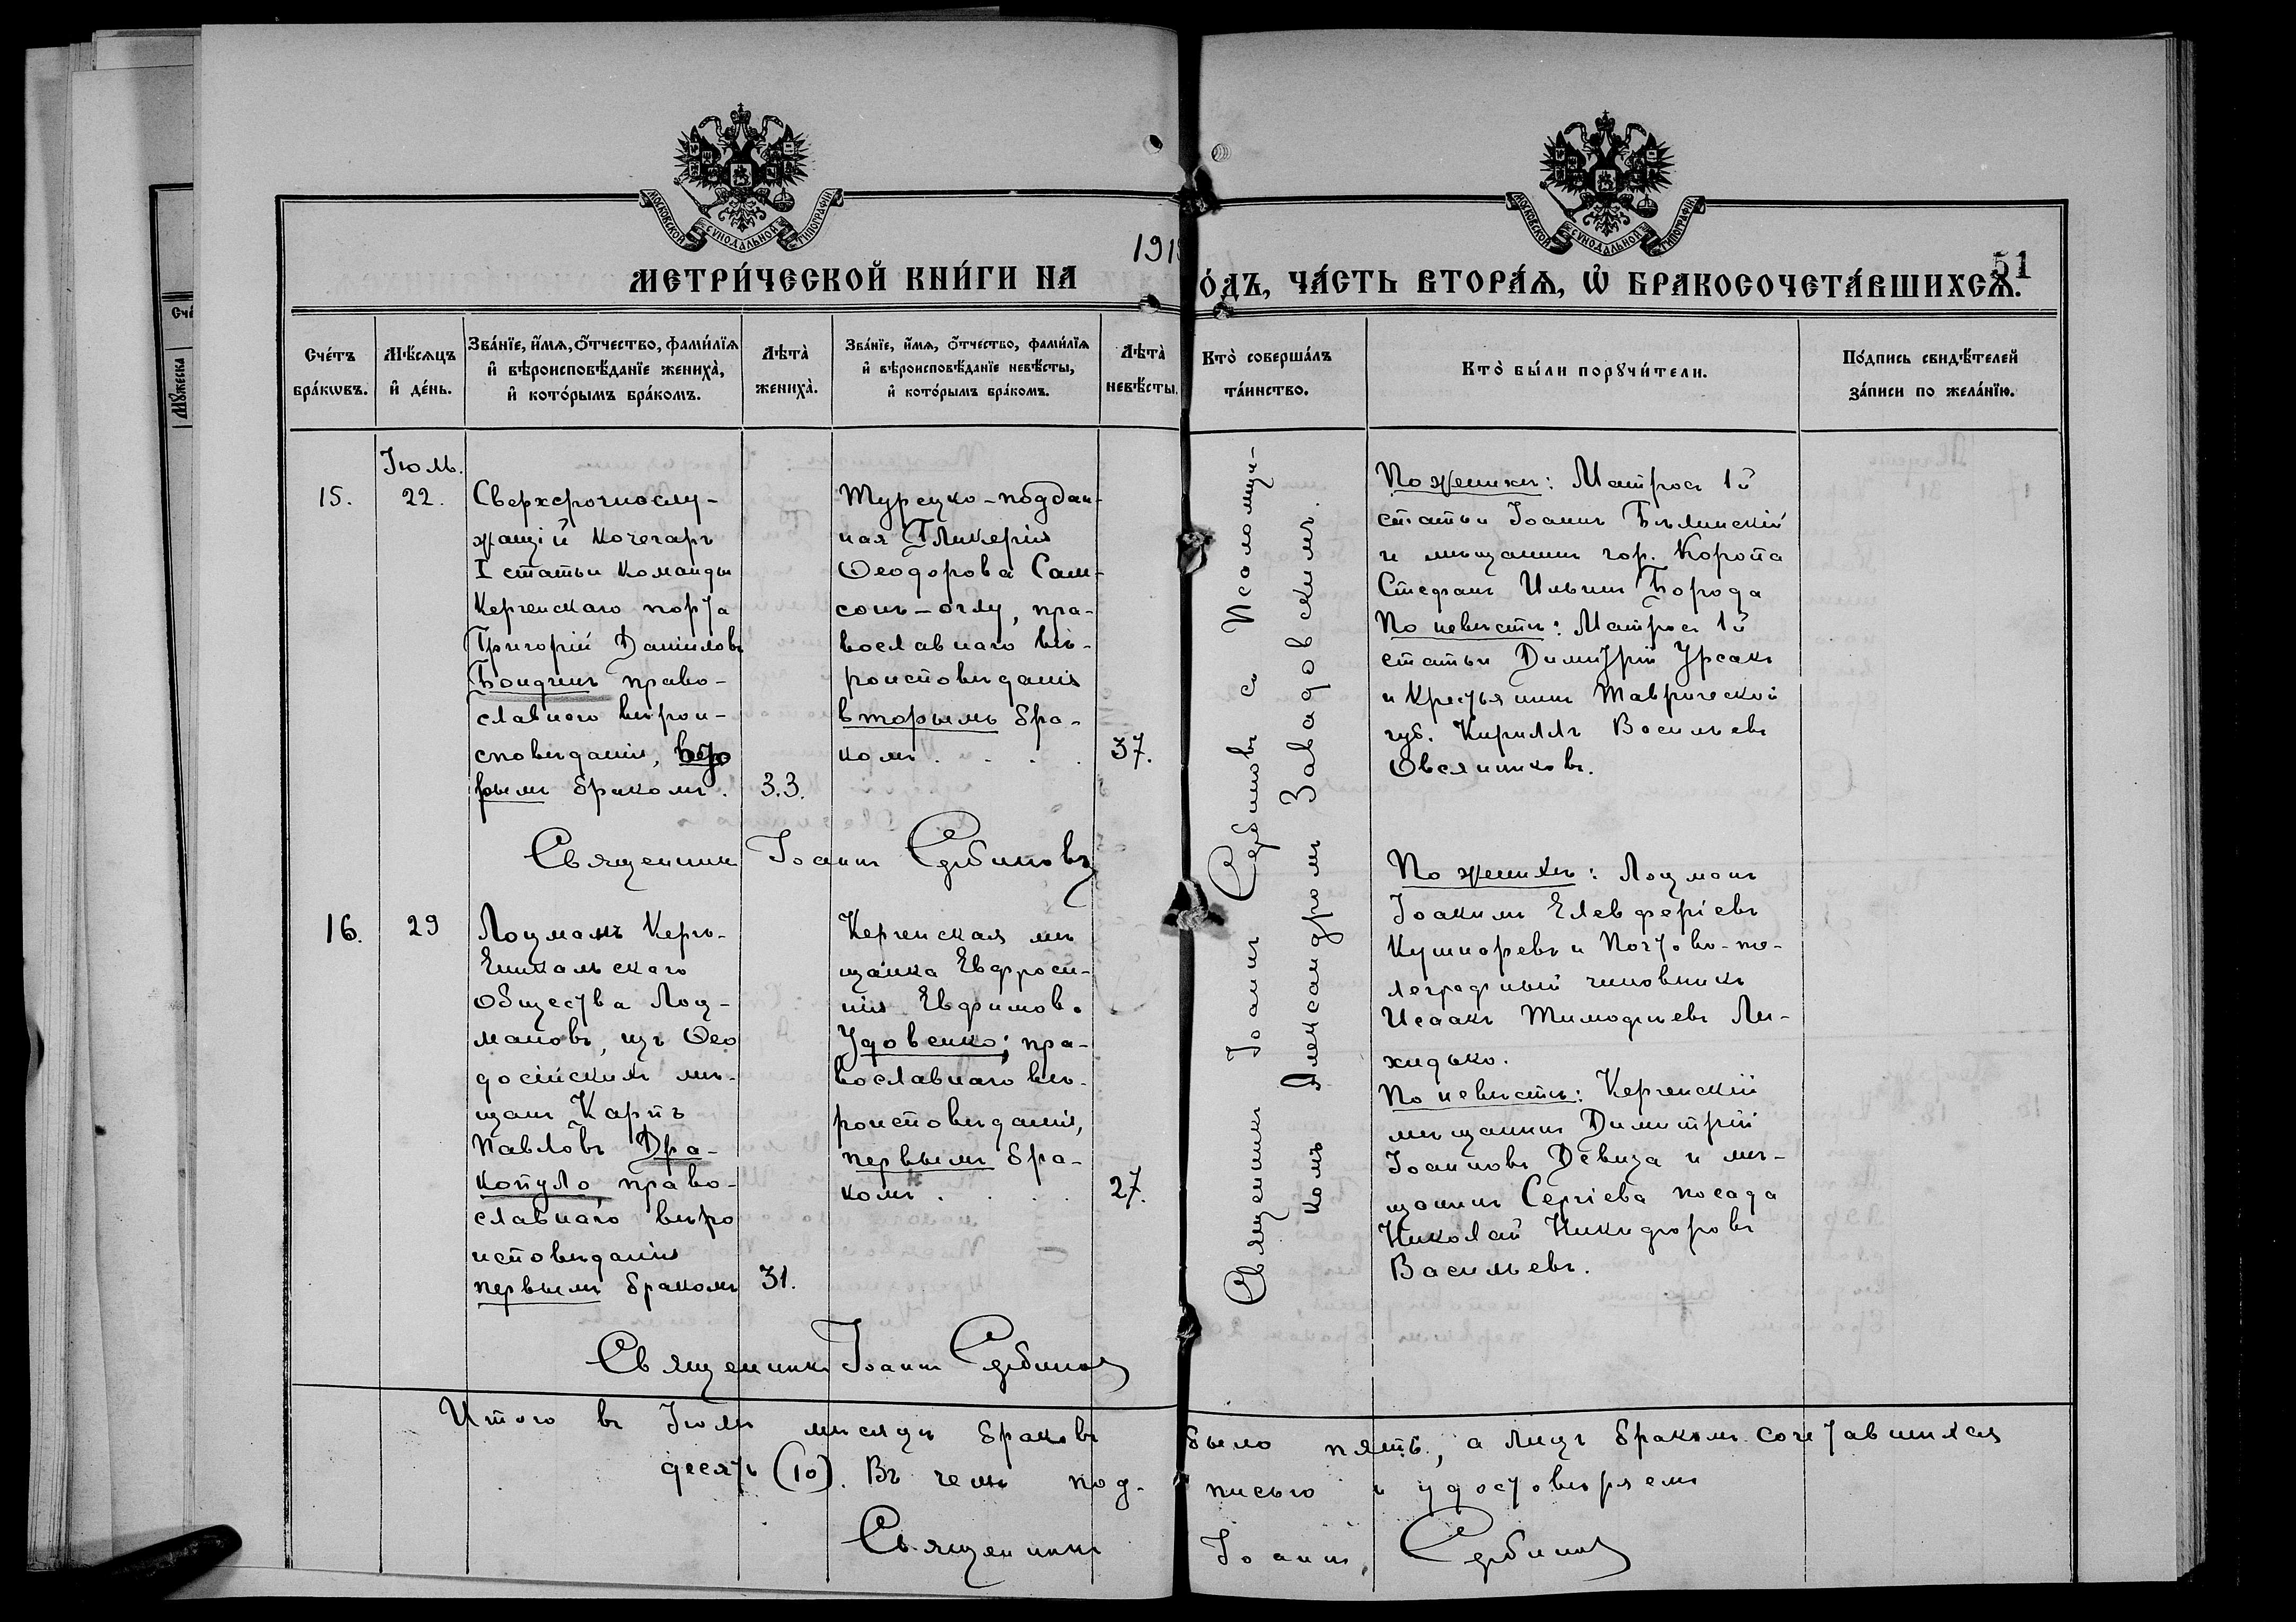 МОСКОВСКОЙ СѴНОДАЛЬНОЙ ТИПОГРАФІИ
МОСКОВСКОЙ СѴНОДАЛЬНОЙ ТИПОГРАФІИ
51
МЕТРИ́ЧЕСКОЙ КНИ́ГИ НА 191
О́ДЪ, ЧА́СТЬ ВТОРА́Ѧ, Ѡ҆ БРАКОСОЧЕТА́ВШИХСѦ.
Сче́тъ бра́кѡвъ.
Мѣ́сѧцъ и҆ де́нь.
Зва́нїе, и҆́мѧ, ѻ҆́тчество, фами́лїѧ
и҆ вѣроисповѣ́данїе жениха̀,
и҆ кото́рымъ бра́комъ.
Лѣта̀ жениха̀.
Зва́нїе, и҆́мѧ, ѻ҆́тчество, фами́лїѧ
и҆ вѣроисповѣ́данїе невѣ́сты,
и҆ кото́рымъ бра́комъ.
Лѣта̀ невѣ́сты.
Кто̀ соверша́лъ та́инство.
Кто̀ бы́ли порꙋчи́тели.
По́дпись свидѣ́телей
за́писи по жела́нїю.
15.
Іюль.
22.
Сверхсрочнослу-
жащій кочегаръ
I статьи команды
Керченскаго порта
Григорій Даніиловъ
Бондинъ право-
славнаго вѣрои-
сповѣданія, вто
рымъ бракомъ.
33.
Турецко-поддан-
ная Гликерія
Ѳеодорова Сам-
сонъ-оглу, пра-
вославнаго вѣ-
роисповѣданія
вторымъ бра-
комъ . . . .
37.
По женихѣ: Матросъ 1й
статьи Іоаннъ Бѣлинскій
и мѣщанинъ гор. Коропа
Стефанъ Ильинъ Борода
По невѣстѣ: Матросъ 1й
статьи Димитрій Урсакъ
и Крестьянинъ Таврической
губ. Кириллъ Васильевъ
Овсянниковъ.
Священникъ Іоаннъ Сербиновъ
16.
29
Лоцманъ Керчъ-
Еникальскаго
Общества Лоц-
мановъ, изъ Ѳео
досійскихъ мѣ-
щанъ Карпъ
Павловъ Дра-
копуло право-
славнаго вѣро
исповѣданія
первымъ бракомъ
31.
Керченская мѣ
щанка Евфроси-
нія Евфимова
Удовенко; пра-
вославнаго вѣ-
роисповѣданія,
первымъ бра-
комъ . . . .
27.
Священникъ Іоаннъ Сербиновъ съ Псаломщи-
комъ Александромъ Завадовскимъ.
По женихѣ: Лоцманъ
Іоакимъ Елевферіевъ
Кушнаревъ и Почтово-те-
леграфный чиновникъ
Исаакъ Тимофѣевъ Ли-
хидько.
По невѣстѣ: Керченскій
мѣщанинъ Димитрій
Іоанновъ Девиза и мѣ-
щанинъ Сергіева посада
Николай Никифоровъ
Васильевъ.
Священникъ Іоаннъ Сербиновъ
Итого въ Іюлѣ мѣсяцѣ браковъ было пять, а лицъ бракомъ сочетавшихся
десять (10). Въ чемъ подписью и удостовѣряемъ
Священникъ Іоаннъ Сербиновъ